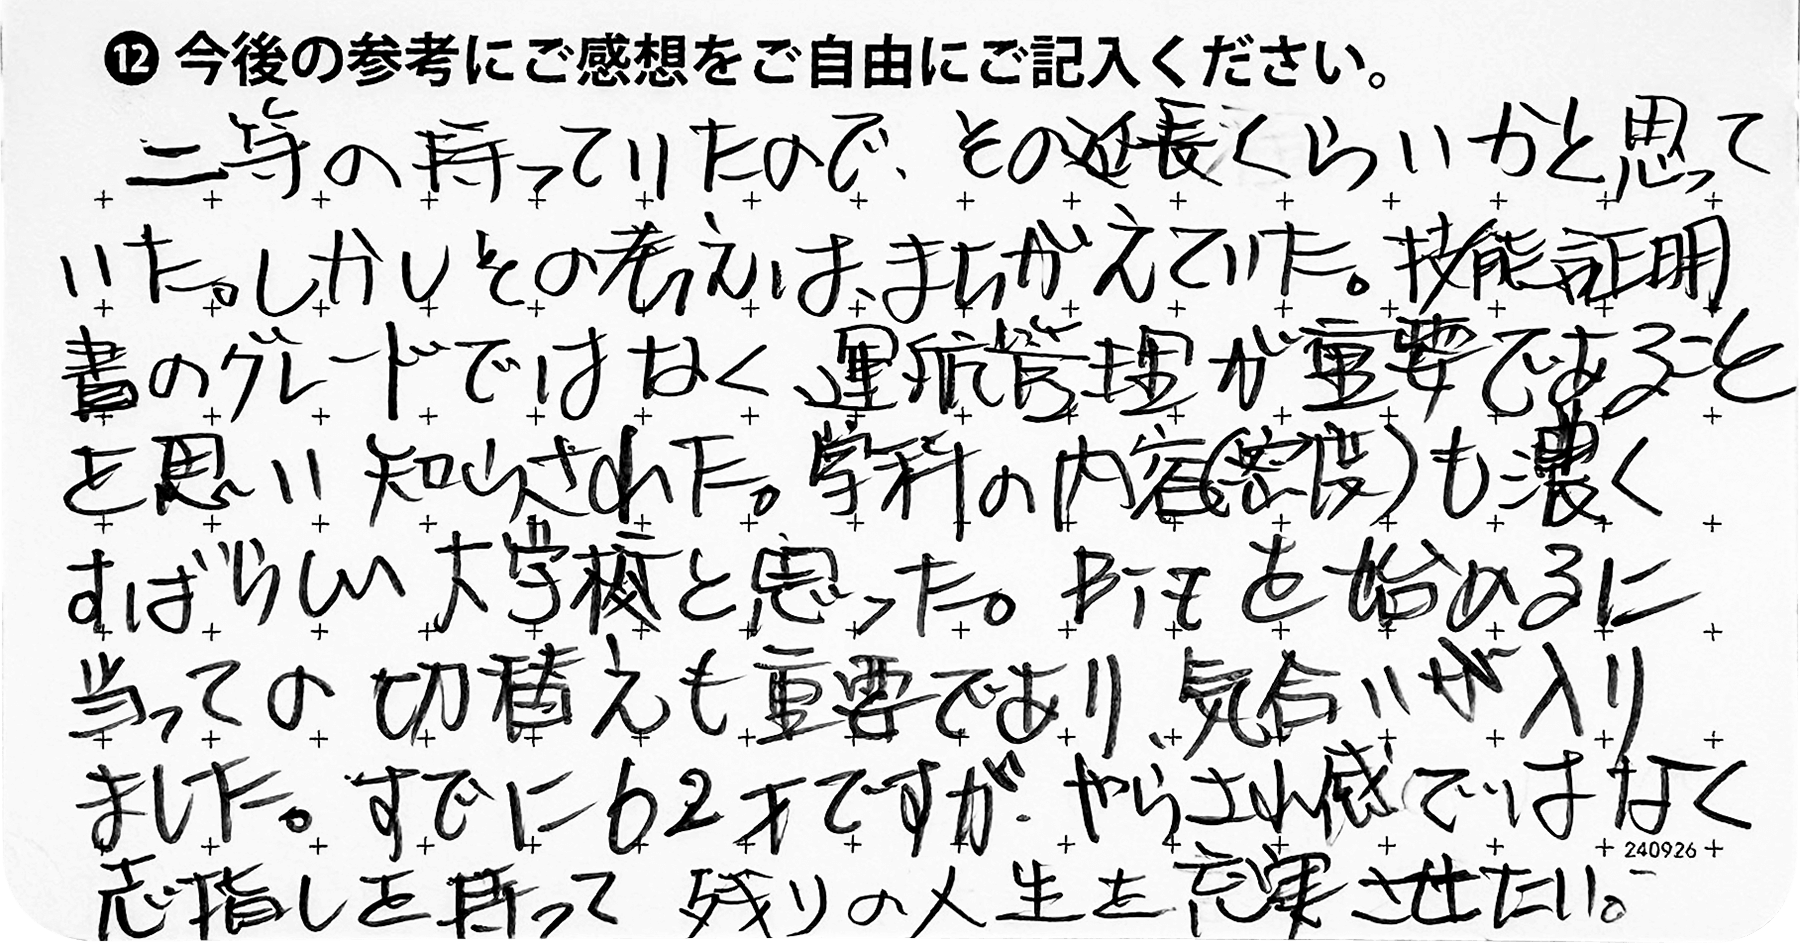 ⓬ 今後の参考にご感想をご自由にご記入ください。
二等の持っていたので、その延長くらいかと思って
いた。しかしその考えは、まちがえていた。技能証明
書のグレードではなく運航管理が重要であること
を思い知らされた。学科の内容(密度)も濃く
すばらしい大学校と思った。
を始めるに
当っての切替えも重要であり、気合いが入り
ました。すでに62才ですが、やらされ感ではなく
240926
志指しを持って 残りの人生を充実させたい。